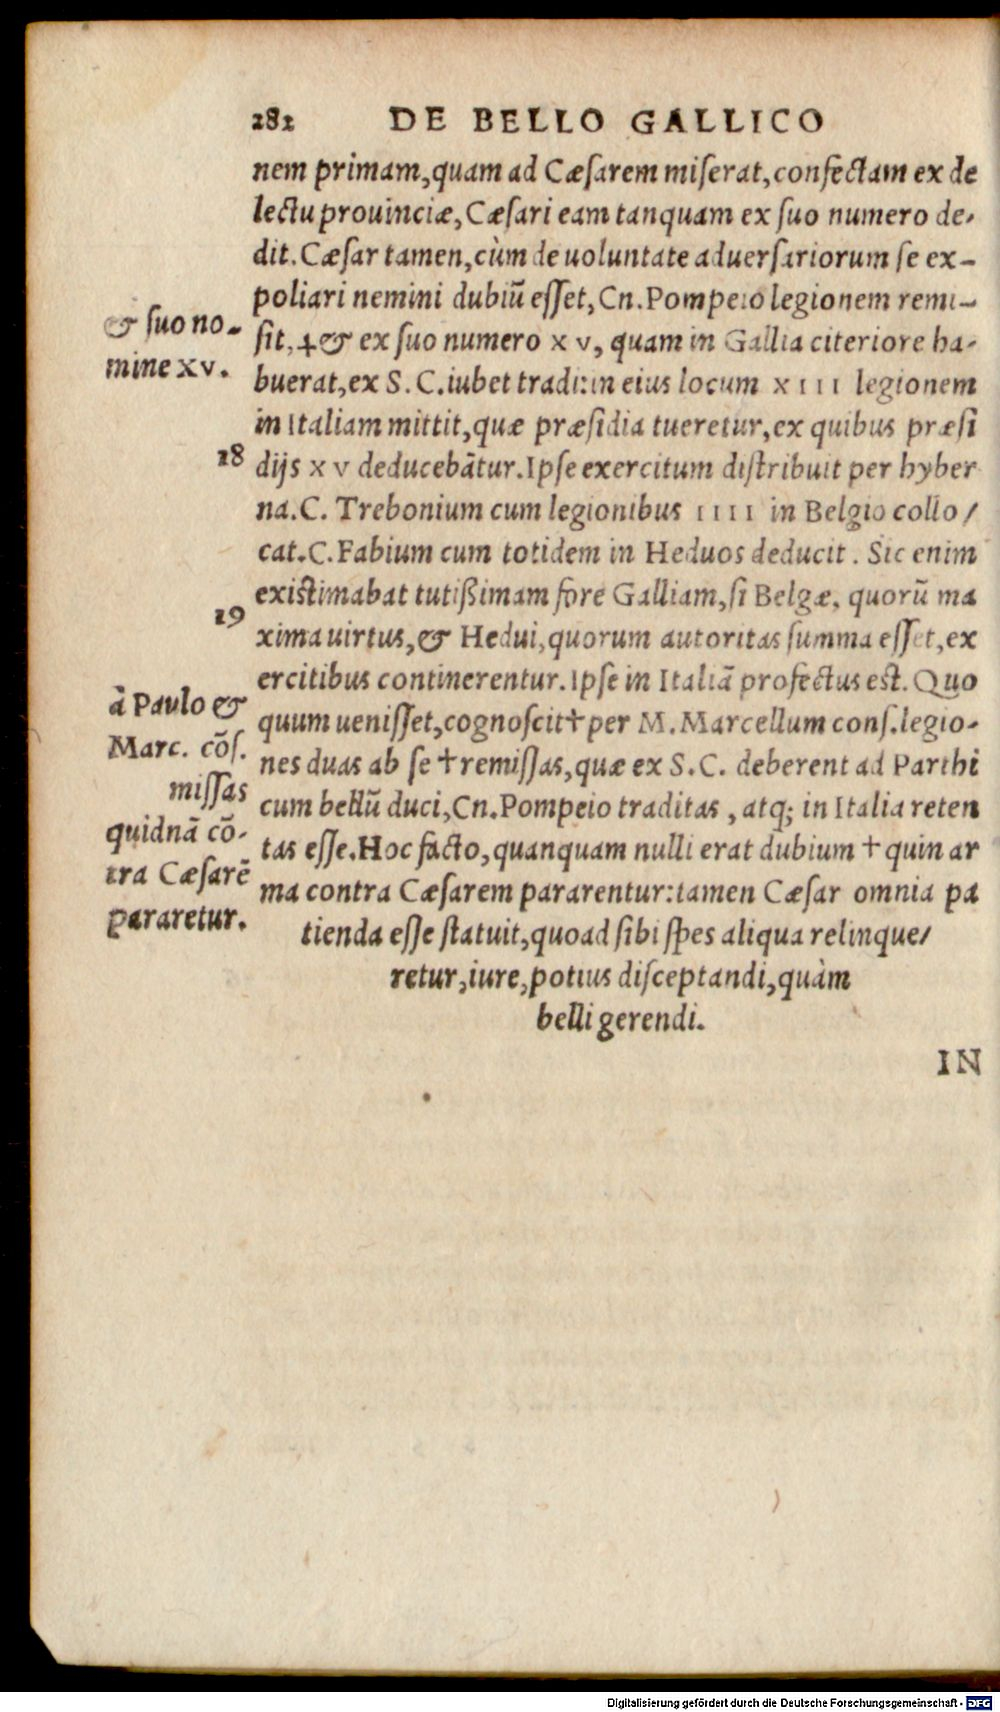 282 DE BELLO GALLICO
nem primam,quam ad Cæsarem miserat,confectam ex de
lectu prouinciæ,Cæsari eam tanquam ex suo numero de-
dit.Cæsar tamen,cùm de uoluntate aduersariorum se ex-
poliari nemini dubiũ esset,Cn.Pompeio legionem remi-
sit,+& ex suo numero x v, quam in Gallia citeriore ha-
buerat,ex S.C.iubet tradi:in eius locum x i i i legionem
in Italiam mittit,quæ præsidia tueretur,ex quibus præsi
dijs x v deducebãtur.Ipse exercitum distribuit per hyber
na.C. Trebonium cum legionibus i i i i in Belgio collo/
cat.C.Fabium cum totidem in Heduos deducit. Sic enim
existimabat tutißimam fore Galliam,si Belgæ, quorũ ma
xima uirtus,& Hedui,quorum autoritas summa esset,ex
ercitibus continerentur.Ipse in Italiã profectus est.Quo
quum uenisset,cognoscit†per M.Marcellum cons.legio-
nes duas ab se †remissas,quæ ex S.C. deberent ad Parthi
cum bellũ duci,Cn.Pompeio traditas, atq; in Italia reten
tas esse.Hoc facto,quanquam nulli erat dubium † quin ar
ma contra Cæsarem pararentur:tamen Cæsar omnia pa
tienda esse statuit,quoad sibi spes aliqua relinque/
retur,iure,potius disceptandi,quàm
belli gerendi.
IN
& suo no-
mine xv.
18
19
à Paulo &
Marc. cõs.
missas
quidnã cõ-
tra Cæsarẽ
pararetur.
Digitalisierung gefördert durch die Deutsche Forschungsgemeinschaft - DFG